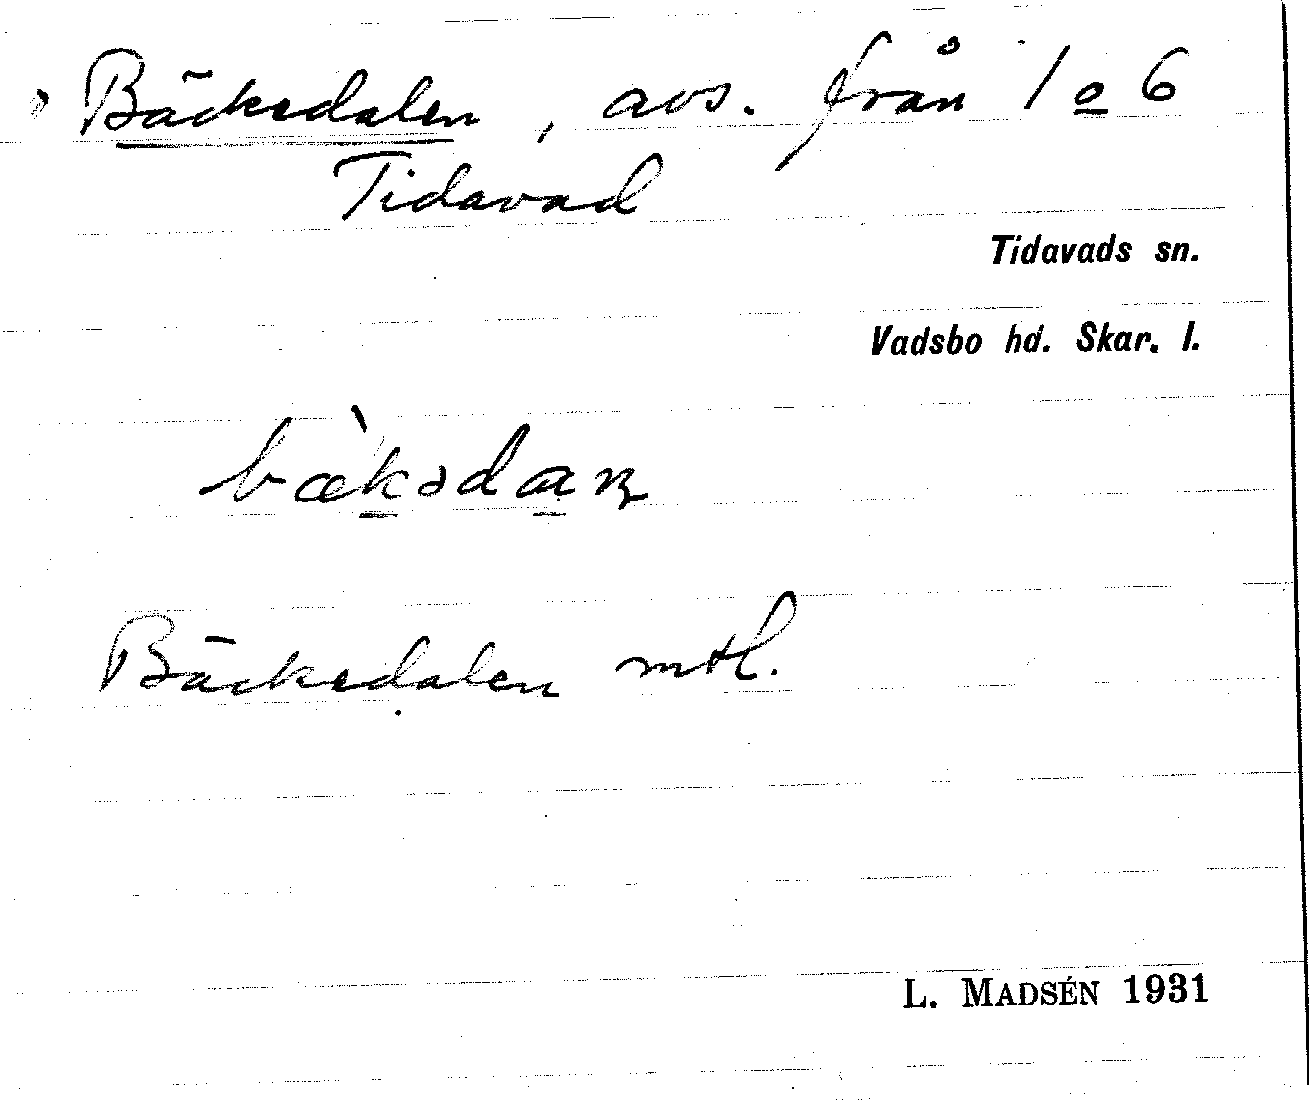 Bäckedalen, avs. från 1 o 6
Tidavad
Tidavads sn.
Vadsbo hd. Skar. l.
Bäckedalen mtl.
L. MADSÉN 1931